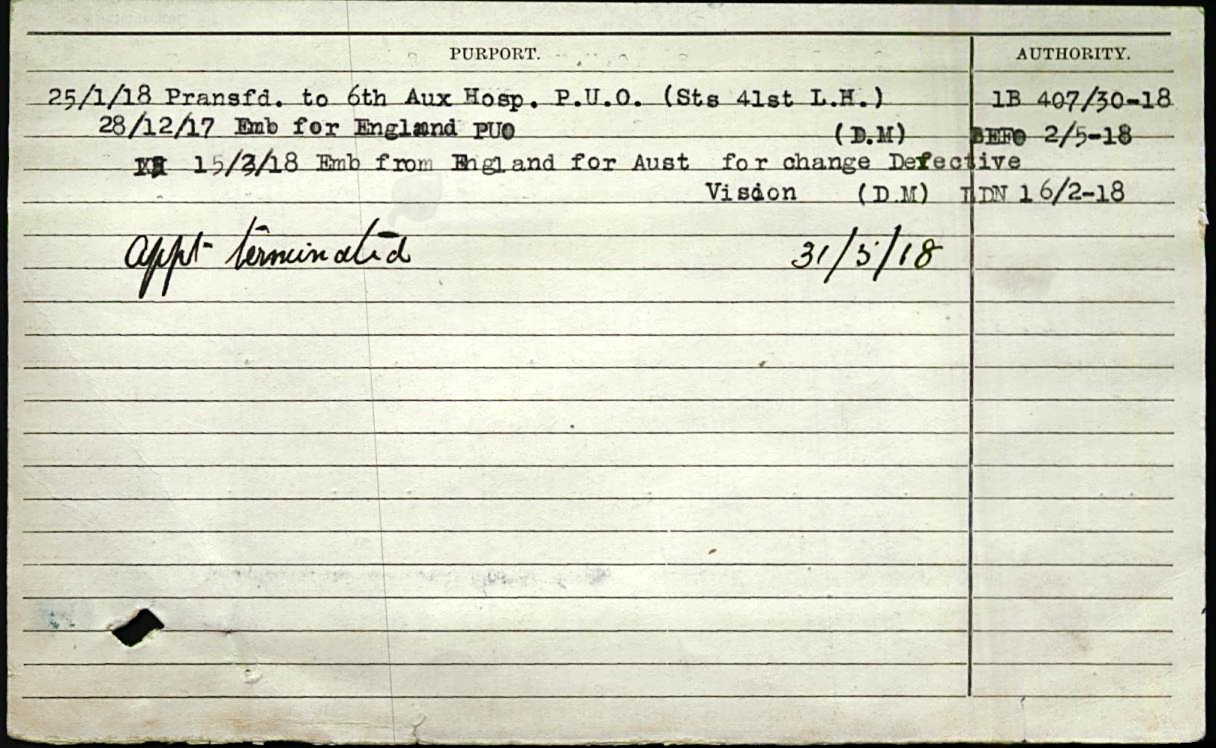 PURPORT. AUTHORITY.
25/1/18 Pransfd. to 6th Aux Hosp. P.U.O. (Sts 41st L.H.) 1B 407/30-18
28/12/17 Emb for England PUO (D.M) BEF 2/5-18
15/3/18 Emb from England for Aust for change Defective
Vision (D.M) LDN 16/2-18
Appt terminated 31/5/18